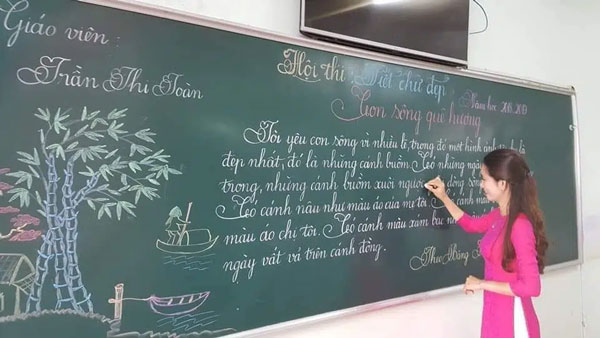 Giáo viên:
Trần Thị Toàn
Hội thi: Viết chữ đẹp
Năm học 2018-2019
Con sông quê hương
Tôi yêu con sông vì nhiều lẽ, trong đó một hình ảnh
đẹp nhất, đó là những cánh buồm. Có những ngày
trong, những cánh buồm xuôi ngược dòng sông
Có cánh nâu như màu áo của mẹ tôi. cánh màu
màu áo chị tôi. Có cánh màu xám bạc
ngày vất vả trên cánh đồng.
Theo Băng